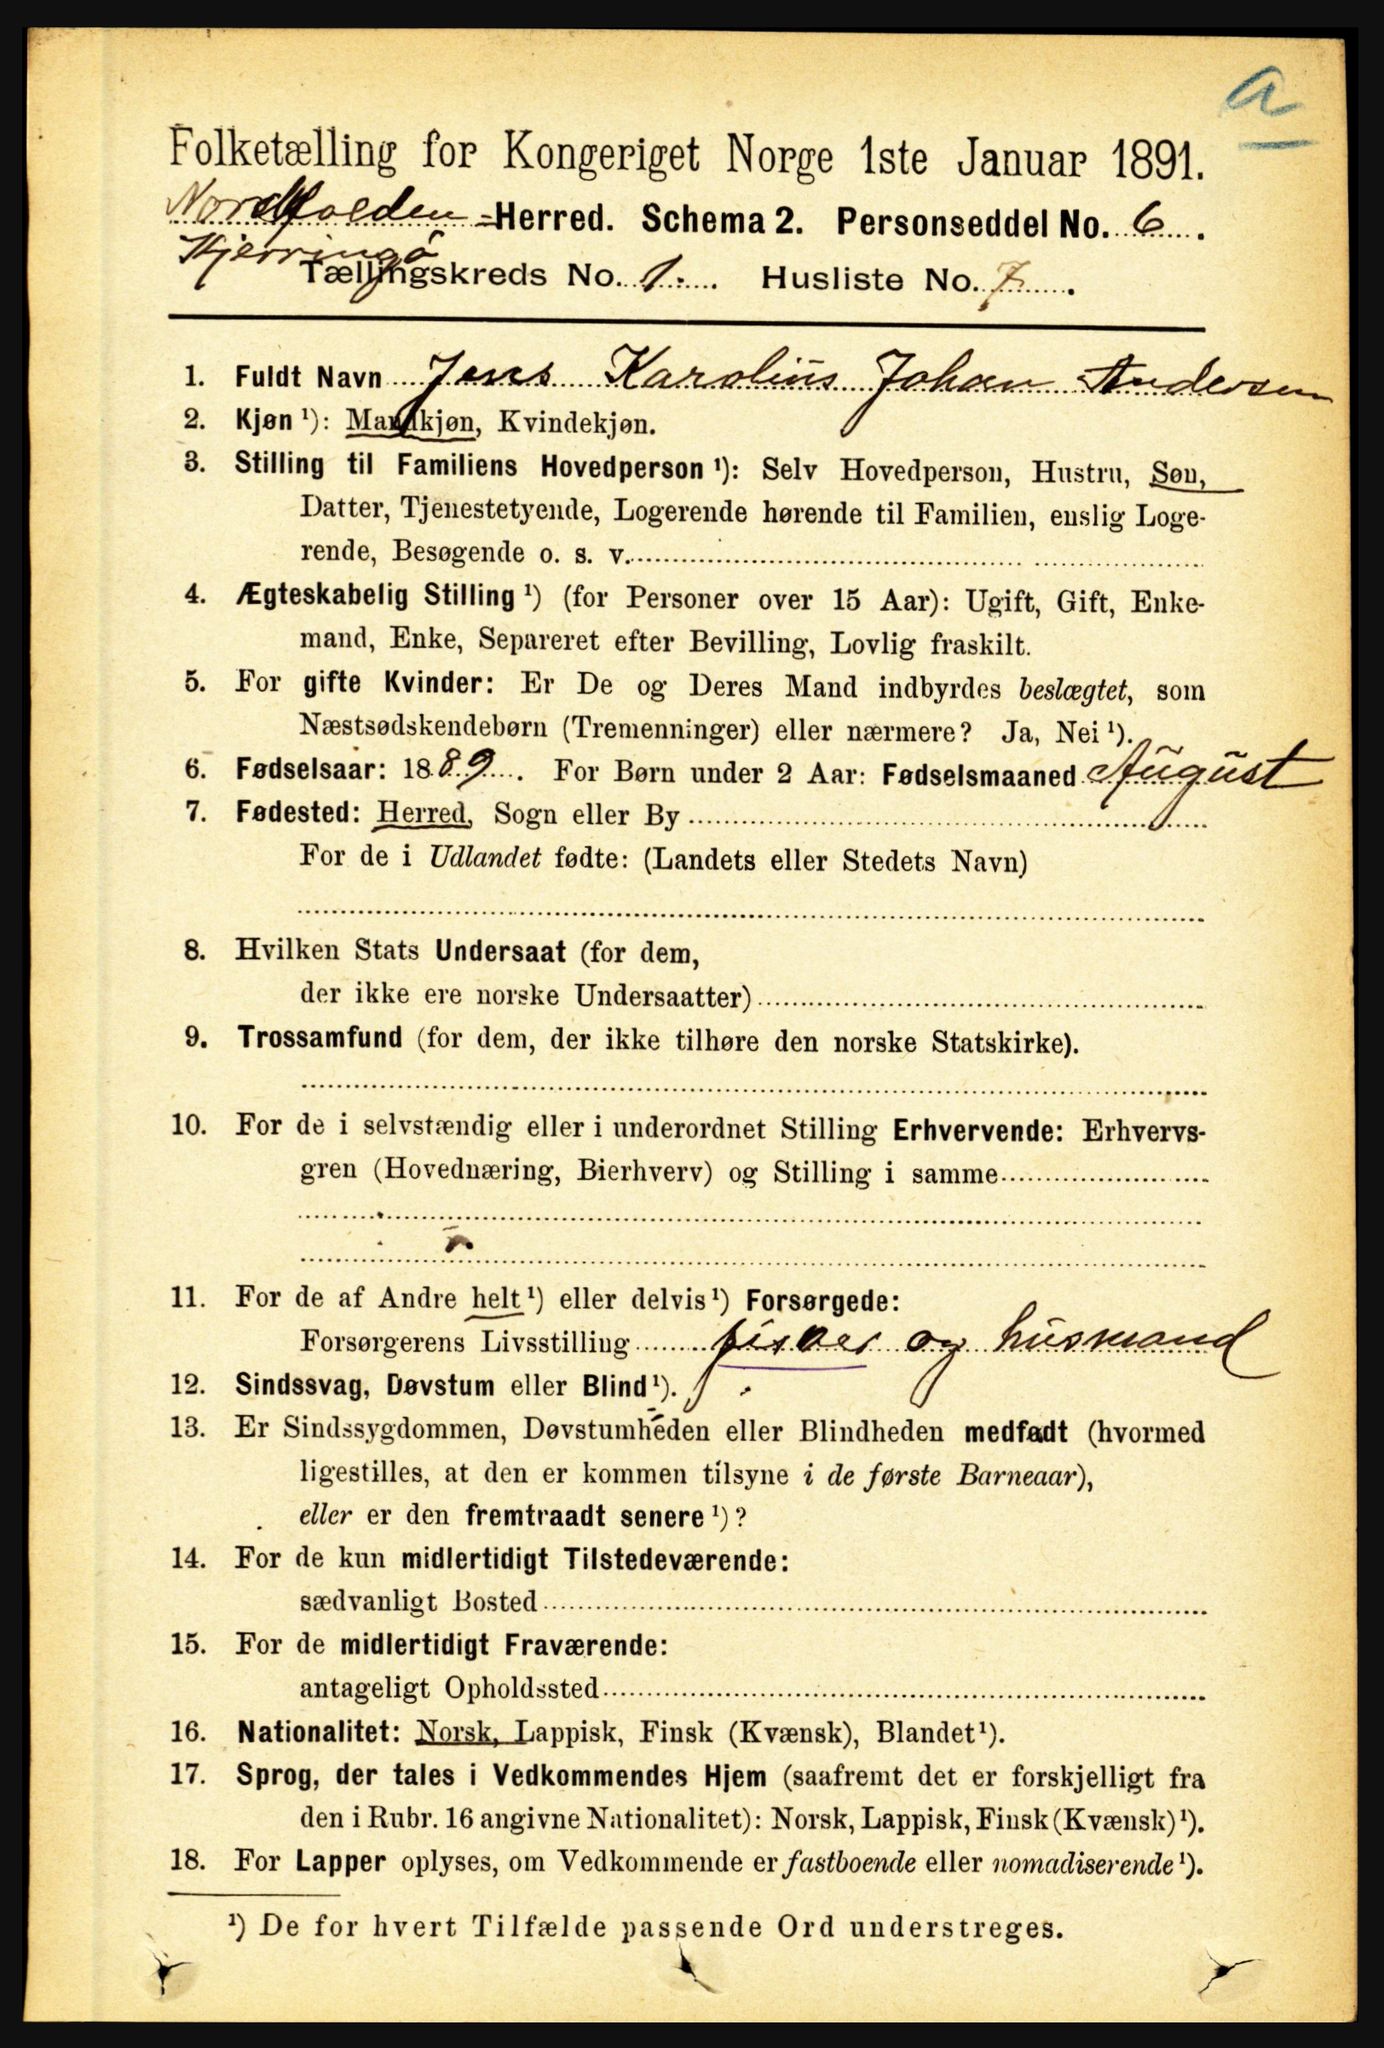 a
Folketælling for Kongeriget Norge 1ste Januar 1891.
Nordfolden Herred. Schema 2. Personseddel No. 6.
Kjerringø
Tællingskreds No. 1. Husliste No. 7.
1. Fuldt Navn Jens Karolius Johan Andersen
2. Kjøn ¹): Mandkjøn, Kvindekjøn.
3. Stilling til Familiens Hovedperson ¹): Selv Hovedperson, Hustru, Søn,
Datter, Tjenestetyende, Logerende hørende til Familien, enslig Loge-
rende, Besøgende o. s. v.
4. Ægteskabelig Stilling ¹) (for Personer over 15 Aar): Ugift, Gift, Enke-
mand, Enke, Separeret efter Bevilling, Lovlig fraskilt.
5. For gifte Kvinder: Er De og Deres Mand indbyrdes beslægtet, som
Næstsødskendebørn (Tremenninger) eller nærmere? Ja, Nei ¹).
6. Fødselsaar: 1889. For Børn under 2 Aar: Fødselsmaaned August
7. Fødested: Herred, Sogn eller By
For de i Udlandet fødte: (Landets eller Stedets Navn)
8. Hvilken Stats Undersaat (for dem,
der ikke ere norske Undersaatter)
9. Trossamfund (for dem, der ikke tilhøre den norske Statskirke).
10. For de i selvstændig eller i underordnet Stilling Erhvervende: Erhvervs-
gren (Hovednæring, Bierhverv) og Stilling i samme
11. For de af Andre helt ¹) eller delvis ¹) Forsørgede:
Forsørgerens Livsstilling fisker og husmand
12. Sindssvag, Døvstum eller Blind ¹).
13. Er Sindssygdommen, Døvstumheden eller Blindheden medfødt (hvormed
ligestilles, at den er kommen tilsyne i de første Barneaar),
eller er den fremtraadt senere ¹)?
14. For de kun midlertidigt Tilstedeværende:
sædvanligt Bosted
15. For de midlertidigt Fraværende:
antageligt Opholdssted
16. Nationalitet: Norsk, Lappisk, Finsk (Kvænsk), Blandet ¹).
17. Sprog, der tales i Vedkommendes Hjem (saafremt det er forskjelligt fra
den i Rubr. 16 angivne Nationalitet): Norsk, Lappisk, Finsk (Kvænsk) ¹).
18. For Lapper oplyses, om Vedkommende er fastboende eller nomadiserende ¹).
¹) De for hvert Tilfælde passende Ord understreges.